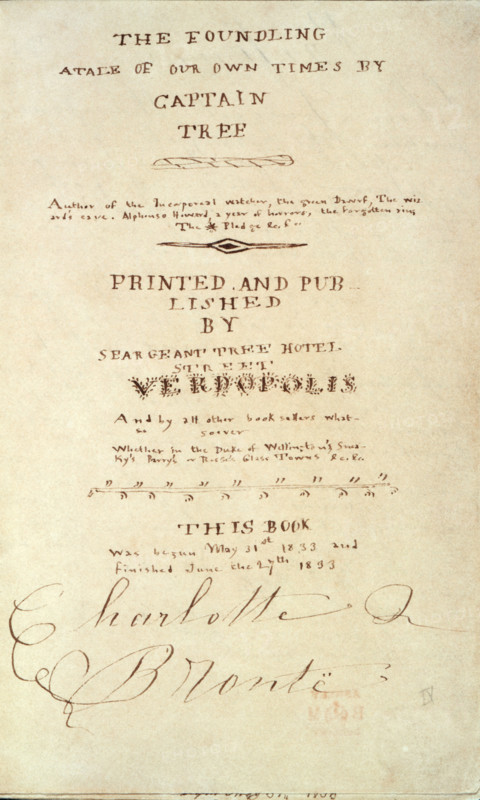 THE FOUNDLING
A TALE OF OUR OWN TIMES BY
CAPTAIN
TREE
Author of the Incorporeal watcher, the green Dwarf, The wiz
ard's cave. Alphonso Howard, a year of horrors, the forgotten ring
The Pledge &c.
PRINTED . AND PUB
LISHED
BY
SEARGEANT TREE HOTEL
STREET
VERDOPOLIS
And by all other booksellers what-
so soever
Whether in the Duke of Wellington's
Parry's or Ross's Glass Towns &c. &c.
THIS BOOK
was begun May 31st 1833 and
finished June the 27th 1833
Charlotte
Brontë
IV